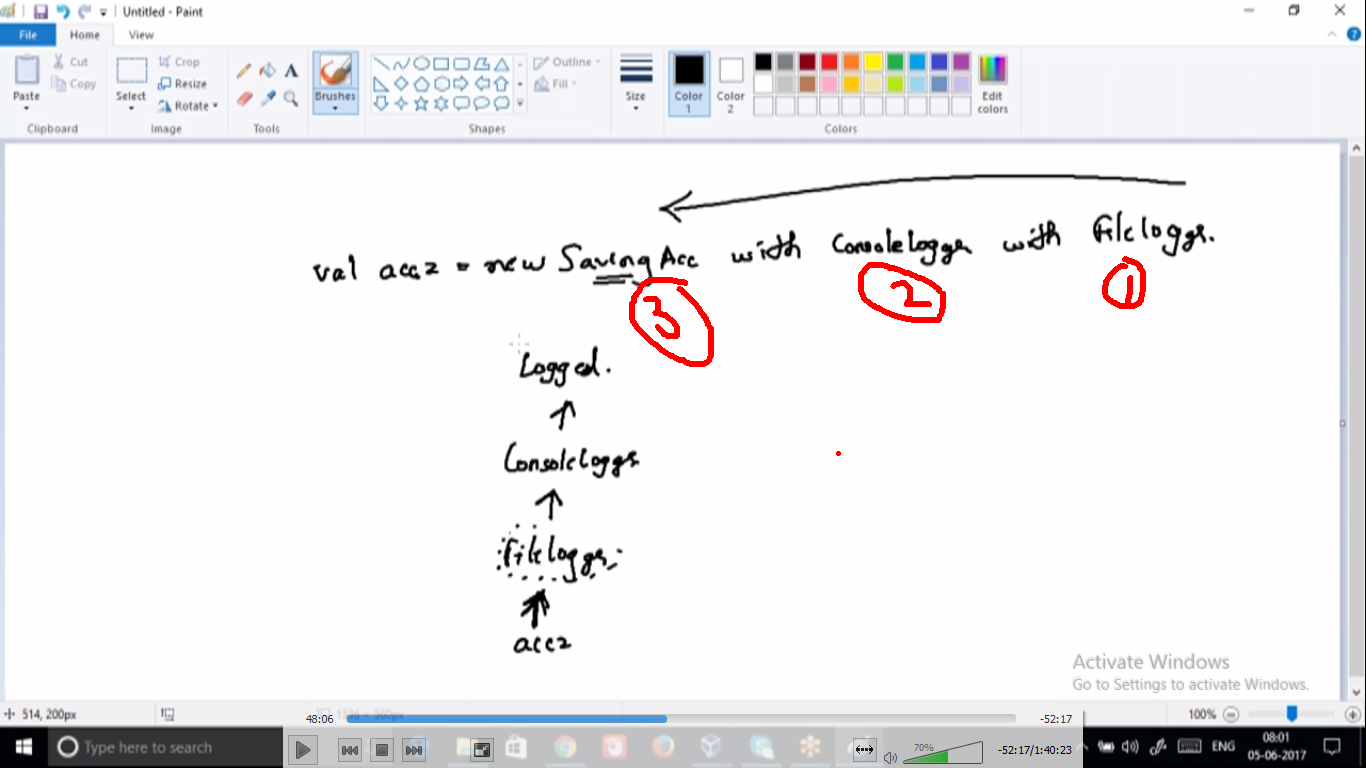 Untitled - Paint
File Home View
Paste Cut Copy Clipboard
Select Crop Resize Rotate Image
Tools
Brushes
Outline Fill Shapes
Size
Color 1 Color 2 Edit colors Colors
val acc2 = new SavingAcc with ConsoleLogger with FileLogger.
3 2 1
Logged.
ConsoleLogger
FileLogger
acc2
Activate Windows
Go to Settings to activate Windows.
514, 200px 1336 × 560px 100%
48:06 -52:17
Type here to search 70% -52:17/1:40:23 ENG 08:01
05-06-2017